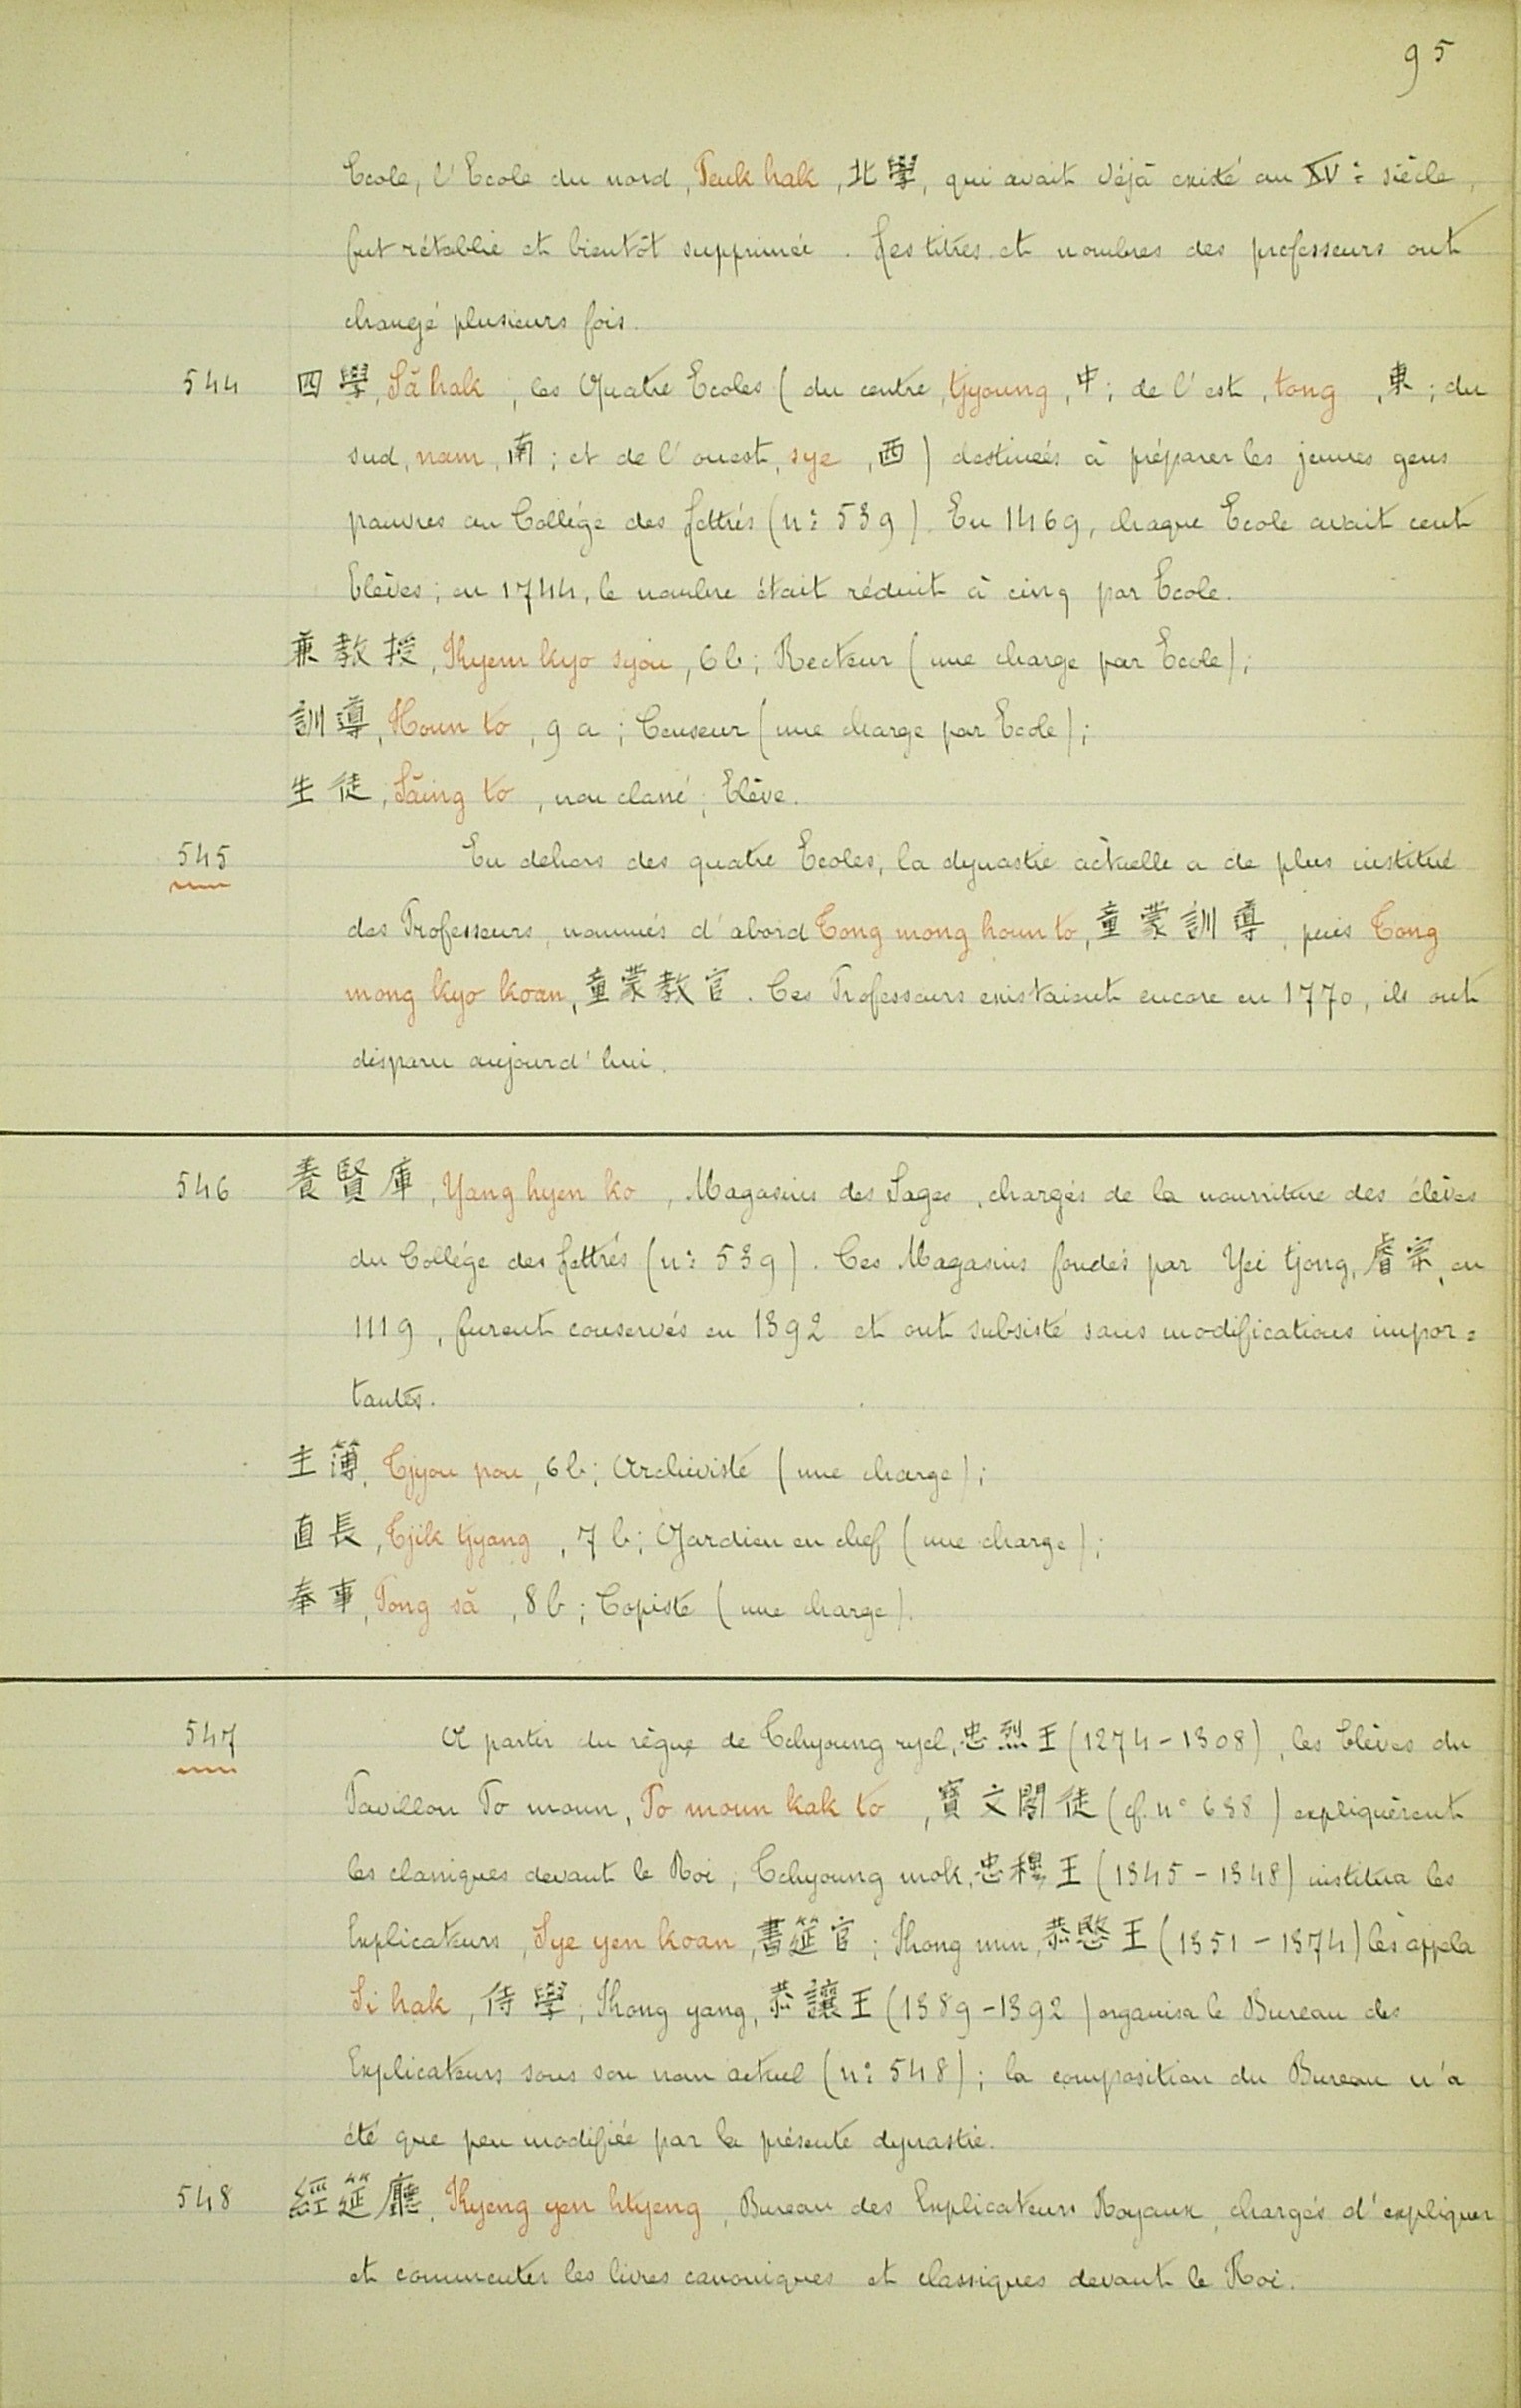 95
Ecole, l'Ecole du nord, Peuk hak, 北學, qui avait déjà existé au XVe siècle,
fut rétablie et bientôt supprimée. Les titres et nombres des professeurs ont
changé plusieurs fois.
544 四學, Să hak, les Quatre Ecoles (du centre, tjyoung, 中; de l'est, tong, 東; du
sud, nam, 南; et de l'ouest, sye, 西) destinées à préparer les jeunes gens
pauvres au Collége des Lettrés (no 539). En 1469, chaque Ecole avait cent
Elèves; en 1744, le nombre était réduit à cinq par Ecole.
兼教授, Kyem kyo syou, 6b; Recteur (une charge par Ecole);
訓導, Houn to, 9a; Censeur (une charge par Ecole);
生徒, Săing to, non classé; Elève.
545 En dehors des quatre Ecoles, la dynastie actuelle a de plus institué
des Professeurs, nommés d'abord Tong mong houn to, 童蒙訓導, puis Tong
mong kyo koan, 童蒙教官. Ces Professeurs existaient encore en 1770, ils ont
disparu aujourd'hui.
546 養賢庫, Yang hyen ko, Magasins des Sages, chargés de la nourriture des élèves
du Collége des Lettrés (no 539). Ces Magasins fondés par Yei tjong, 睿宗, en
1119, furent conservés en 1392 et ont subsisté sans modifications impor=
tantes.
主簿, Tjyou pou, 6b; Archiviste (une charge);
直長, Tjik tjyang, 7b; Gardien en chef (une charge);
奉事, Pong să, 8b; Copiste (une charge).
547 A partir du règne de Tchyoung ryel, 忠烈王 (1274-1308), les Elèves du
Pavillon Po moun, Po moun kak to, 寶文閣徒 (cf. no 638) expliquèrent
les classiques devant le Roi; Tchyoung mok, 忠穆王 (1345-1348) institua les
Explicateurs, Sye yen koan, 書筵官; Kong min, 恭愍王 (1351-1374) les appela
Si hak, 侍學; Kong yang, 恭讓王 (1389-1392) organisa le Bureau des
Explicateurs sous son nom actuel (no 548); la composition du Bureau n'a
été que peu modifiée par la présente dynastie.
548 經筵廳, Kyeng yen htyeng, Bureau des Explicateurs Royaux, chargés d'expliquer
et commenter les livres canoniques et classiques devant le Roi.